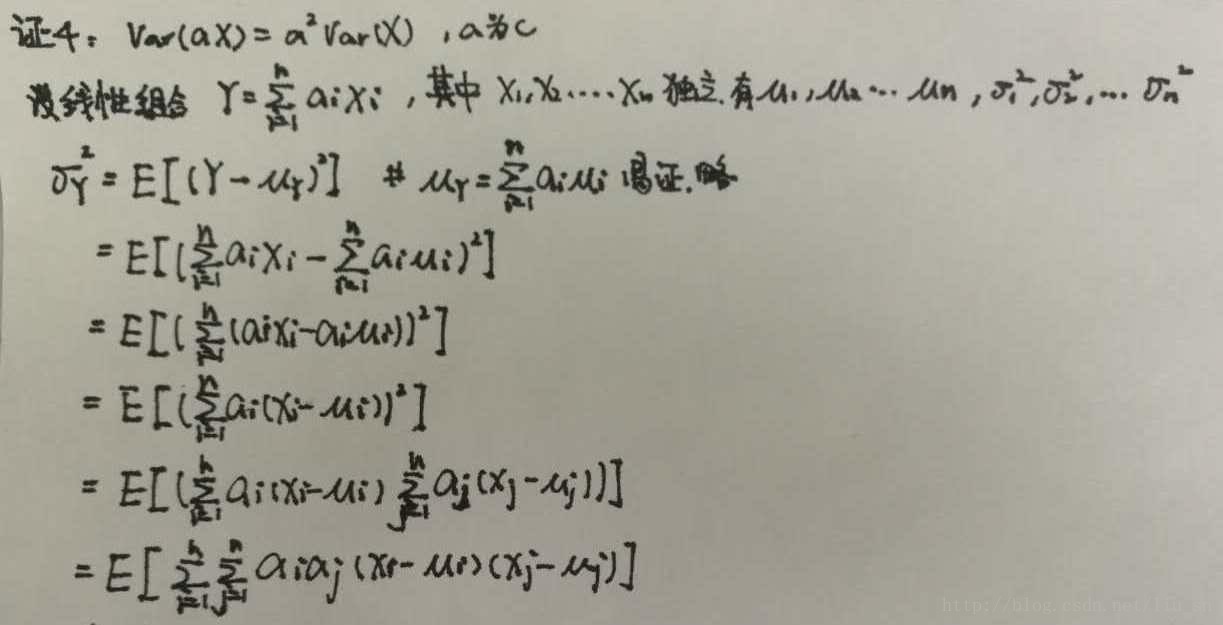 证4: Var(aX) = a² Var(X) , a为C
设线性组合 Y = ∑ᵢ₌₁ⁿ aᵢXᵢ , 其中 X₁, X₂, .... Xₙ 独立. 有 μ₁, μ₂ ... μₙ , σ₁², σ₂², ... σₙ²
σ_Y² = E[(Y - μ_Y)²] # μ_Y = ∑ᵢ₌₁ⁿ aᵢμᵢ 易证. 略
= E[(∑ᵢ₌₁ⁿ aᵢXᵢ - ∑ᵢ₌₁ⁿ aᵢμᵢ)²]
= E[(∑ᵢ₌₁ⁿ (aᵢXᵢ - aᵢμᵢ))²]
= E[(∑ᵢ₌₁ⁿ aᵢ(Xᵢ - μᵢ))²]
= E[(∑ᵢ₌₁ⁿ aᵢ(Xᵢ - μᵢ) ∑ⱼ₌₁ⁿ aⱼ(Xⱼ - μⱼ))]
= E[∑ᵢ₌₁ⁿ ∑ⱼ₌₁ⁿ aᵢaⱼ (Xᵢ - μᵢ)(Xⱼ - μⱼ)]